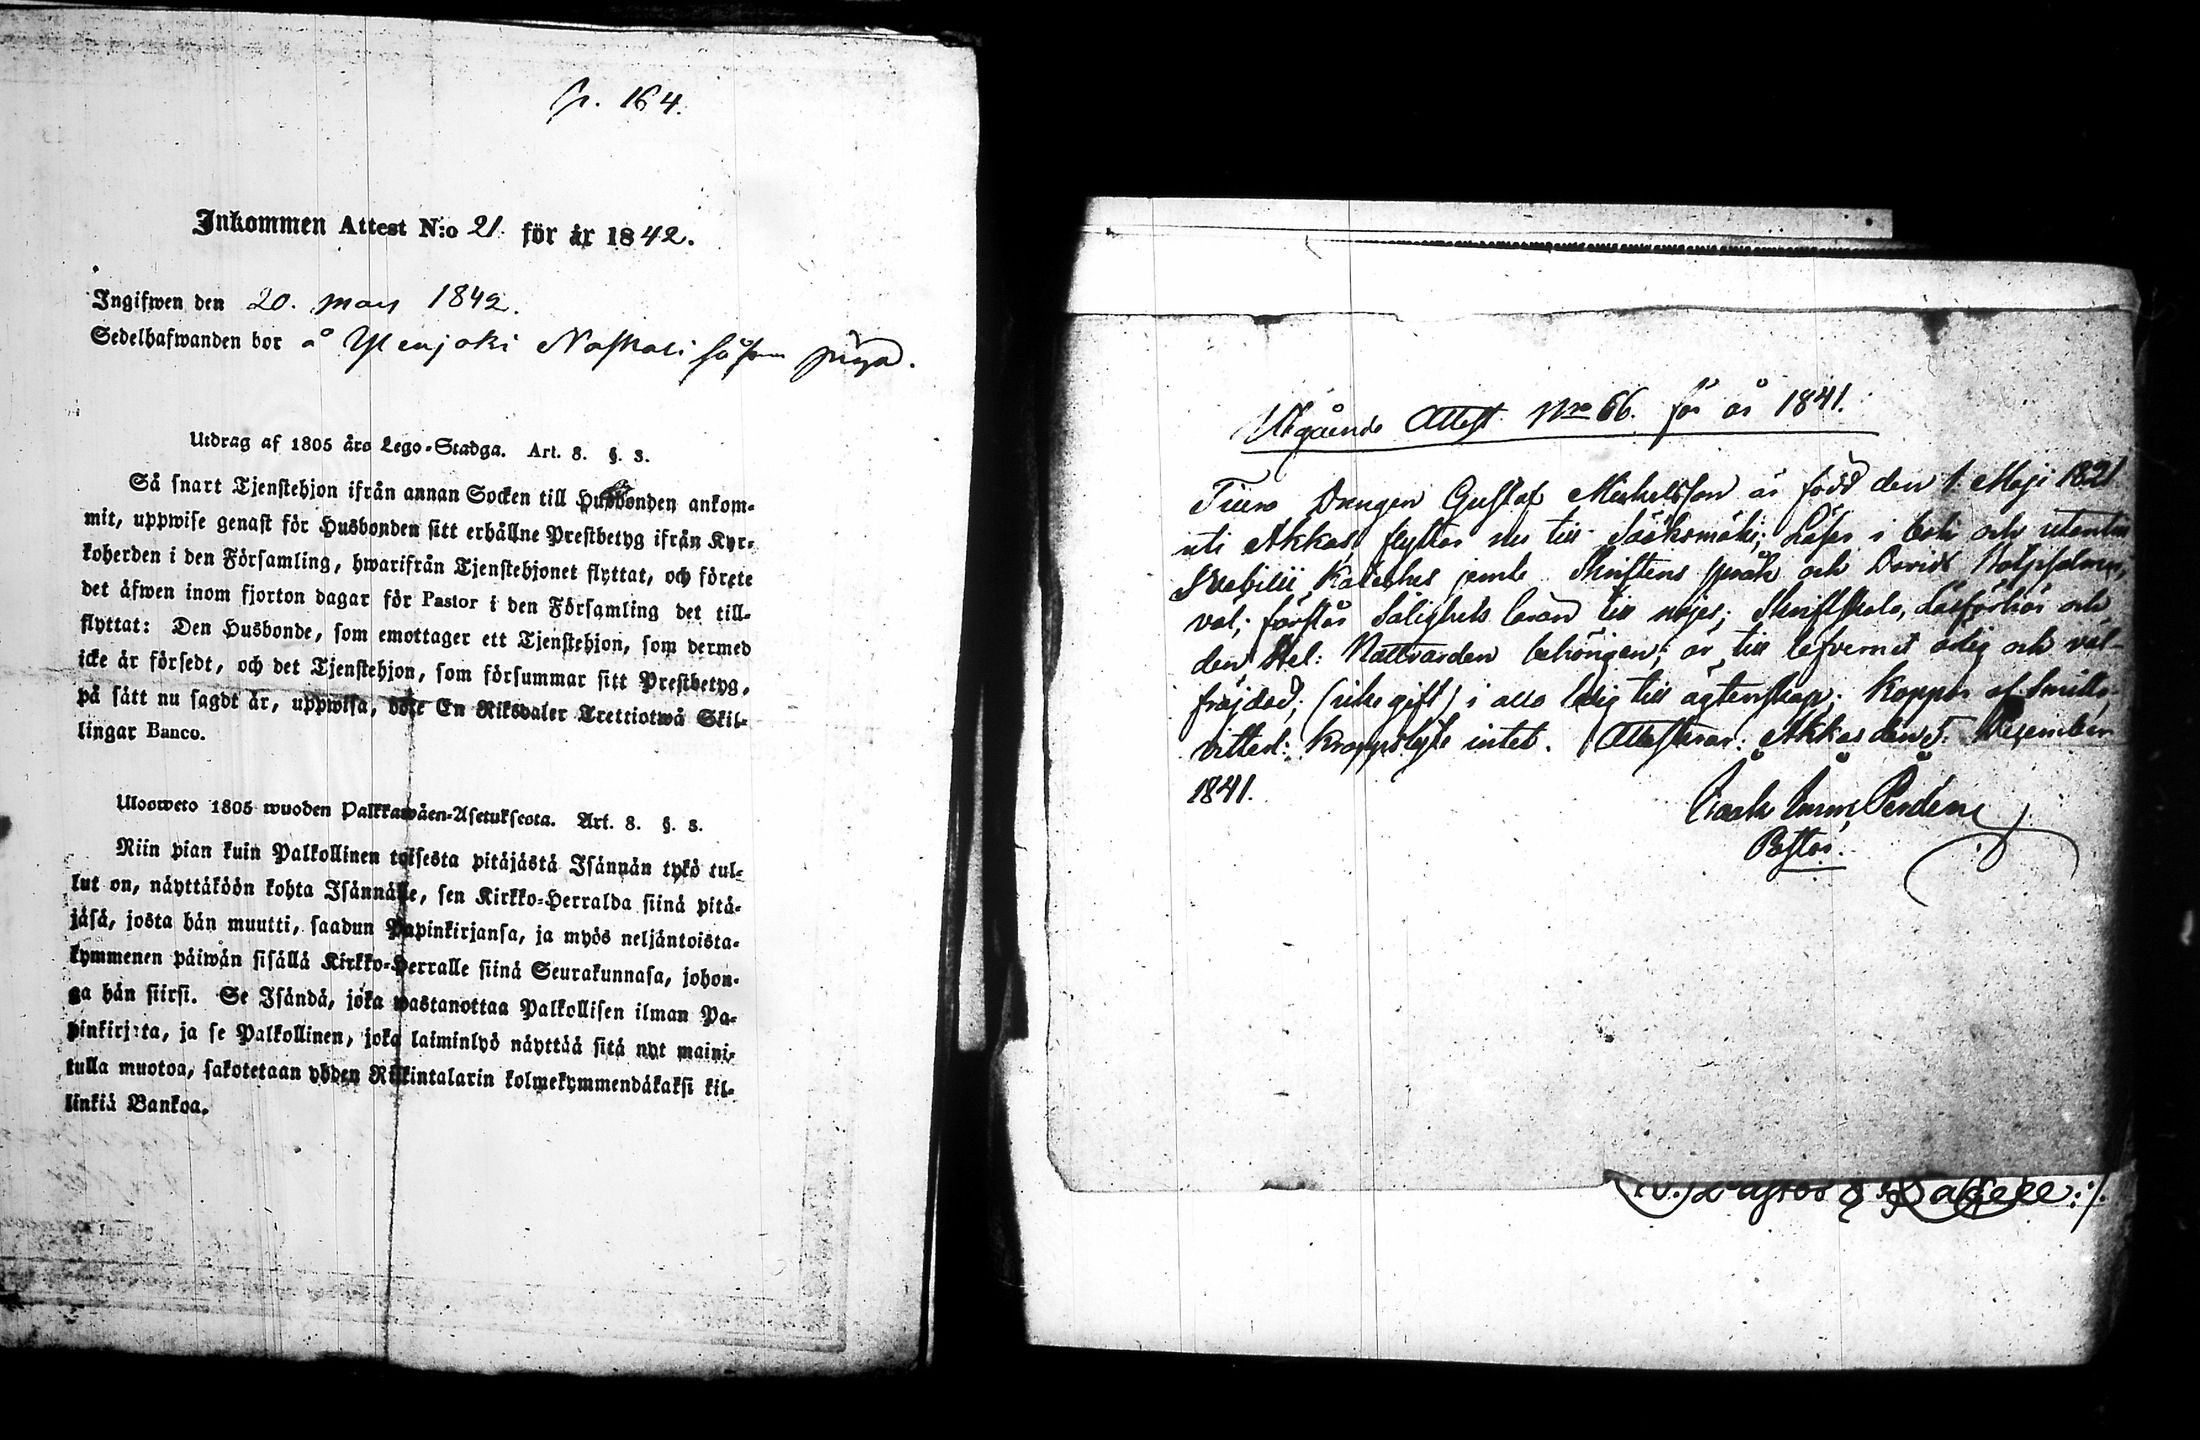 p. 164.
Inkommen Attest N:o 21 för år 1842.
Ingifwen den 20. Mars 1842.
Sedelhafwanden bor å Ylenjoki Naskali såsom piga.
Utdrag af 1805 års Lego-Stadga. Art. 8. §. 3.
Så snart Tjenstehjon ifrån annan Socken till Husbonden ankom-
mit, uppwise genast för Husbonden sitt erhållne Prestbetyg ifrån Kyr-
koherden i den Församling, hwarifrån Tjenstehjonet flyttat, och förete
det äfwen inom fjorton dagar för Pastor i den Församling det till-
flyttat: Den Husbonde, som emottager ett Tjenstehjon, som dermed
icke är försedt, och det Tjenstehjon, som försummar sitt Prestbetyg,
på sätt nu sagdt är, uppwisa, böte En Riksdaler Trettiotwå Skil-
lingar Banco.
Ulosweto 1805 wuoden Palkkawäen-Asetuksesta. Art. 8. §. 3.
Niin pian kuin Palkollinen toisesta pitäjästä Isännän tykö tul-
lut on, näyttäköön kohta Isännälle, sen Kirkko-Herralda siinä pitä-
jäsä, josta hän muutti, saadun Papinkirjansa, ja myös neljäntoista-
kymmenen päiwän sisällä Kirkko-Herralle siinä Seurakunnasa, johon-
ga hän siirsi. Se Isändä, joka wastanottaa Palkollisen ilman Pa-
pinkirjata, ja se Palkollinen, joka laiminlyö näyttää sitä nyt maini-
tulla muotoa, sakotetaan yhden Riikintalarin kolmekymmendäkaksi kil-
linkiä Bankoa.
Utgående Attest Nro 66. för år 1841.
Drengen Gustaf Michelsson är född den 1 Maji 1821
uti Akkas, flyttar nu till Sääksmäki; Läser i bok och utantill
Svebilii Kateches jemte Skriftens språk och Davids Botpsalmer,
väl; förstår Salighets läran till nöjes; Skriftskola, Läsförhör och
den Hel: Nattvarden behörigen; är till lefvernet ärlig och väl-
fräjdad; (icke gift) i allo ledig till ägtenskap; Koppor af
vitted: Kroppslyte intet. Attesterar: Akkas den 5. December
1841.
Pastor.